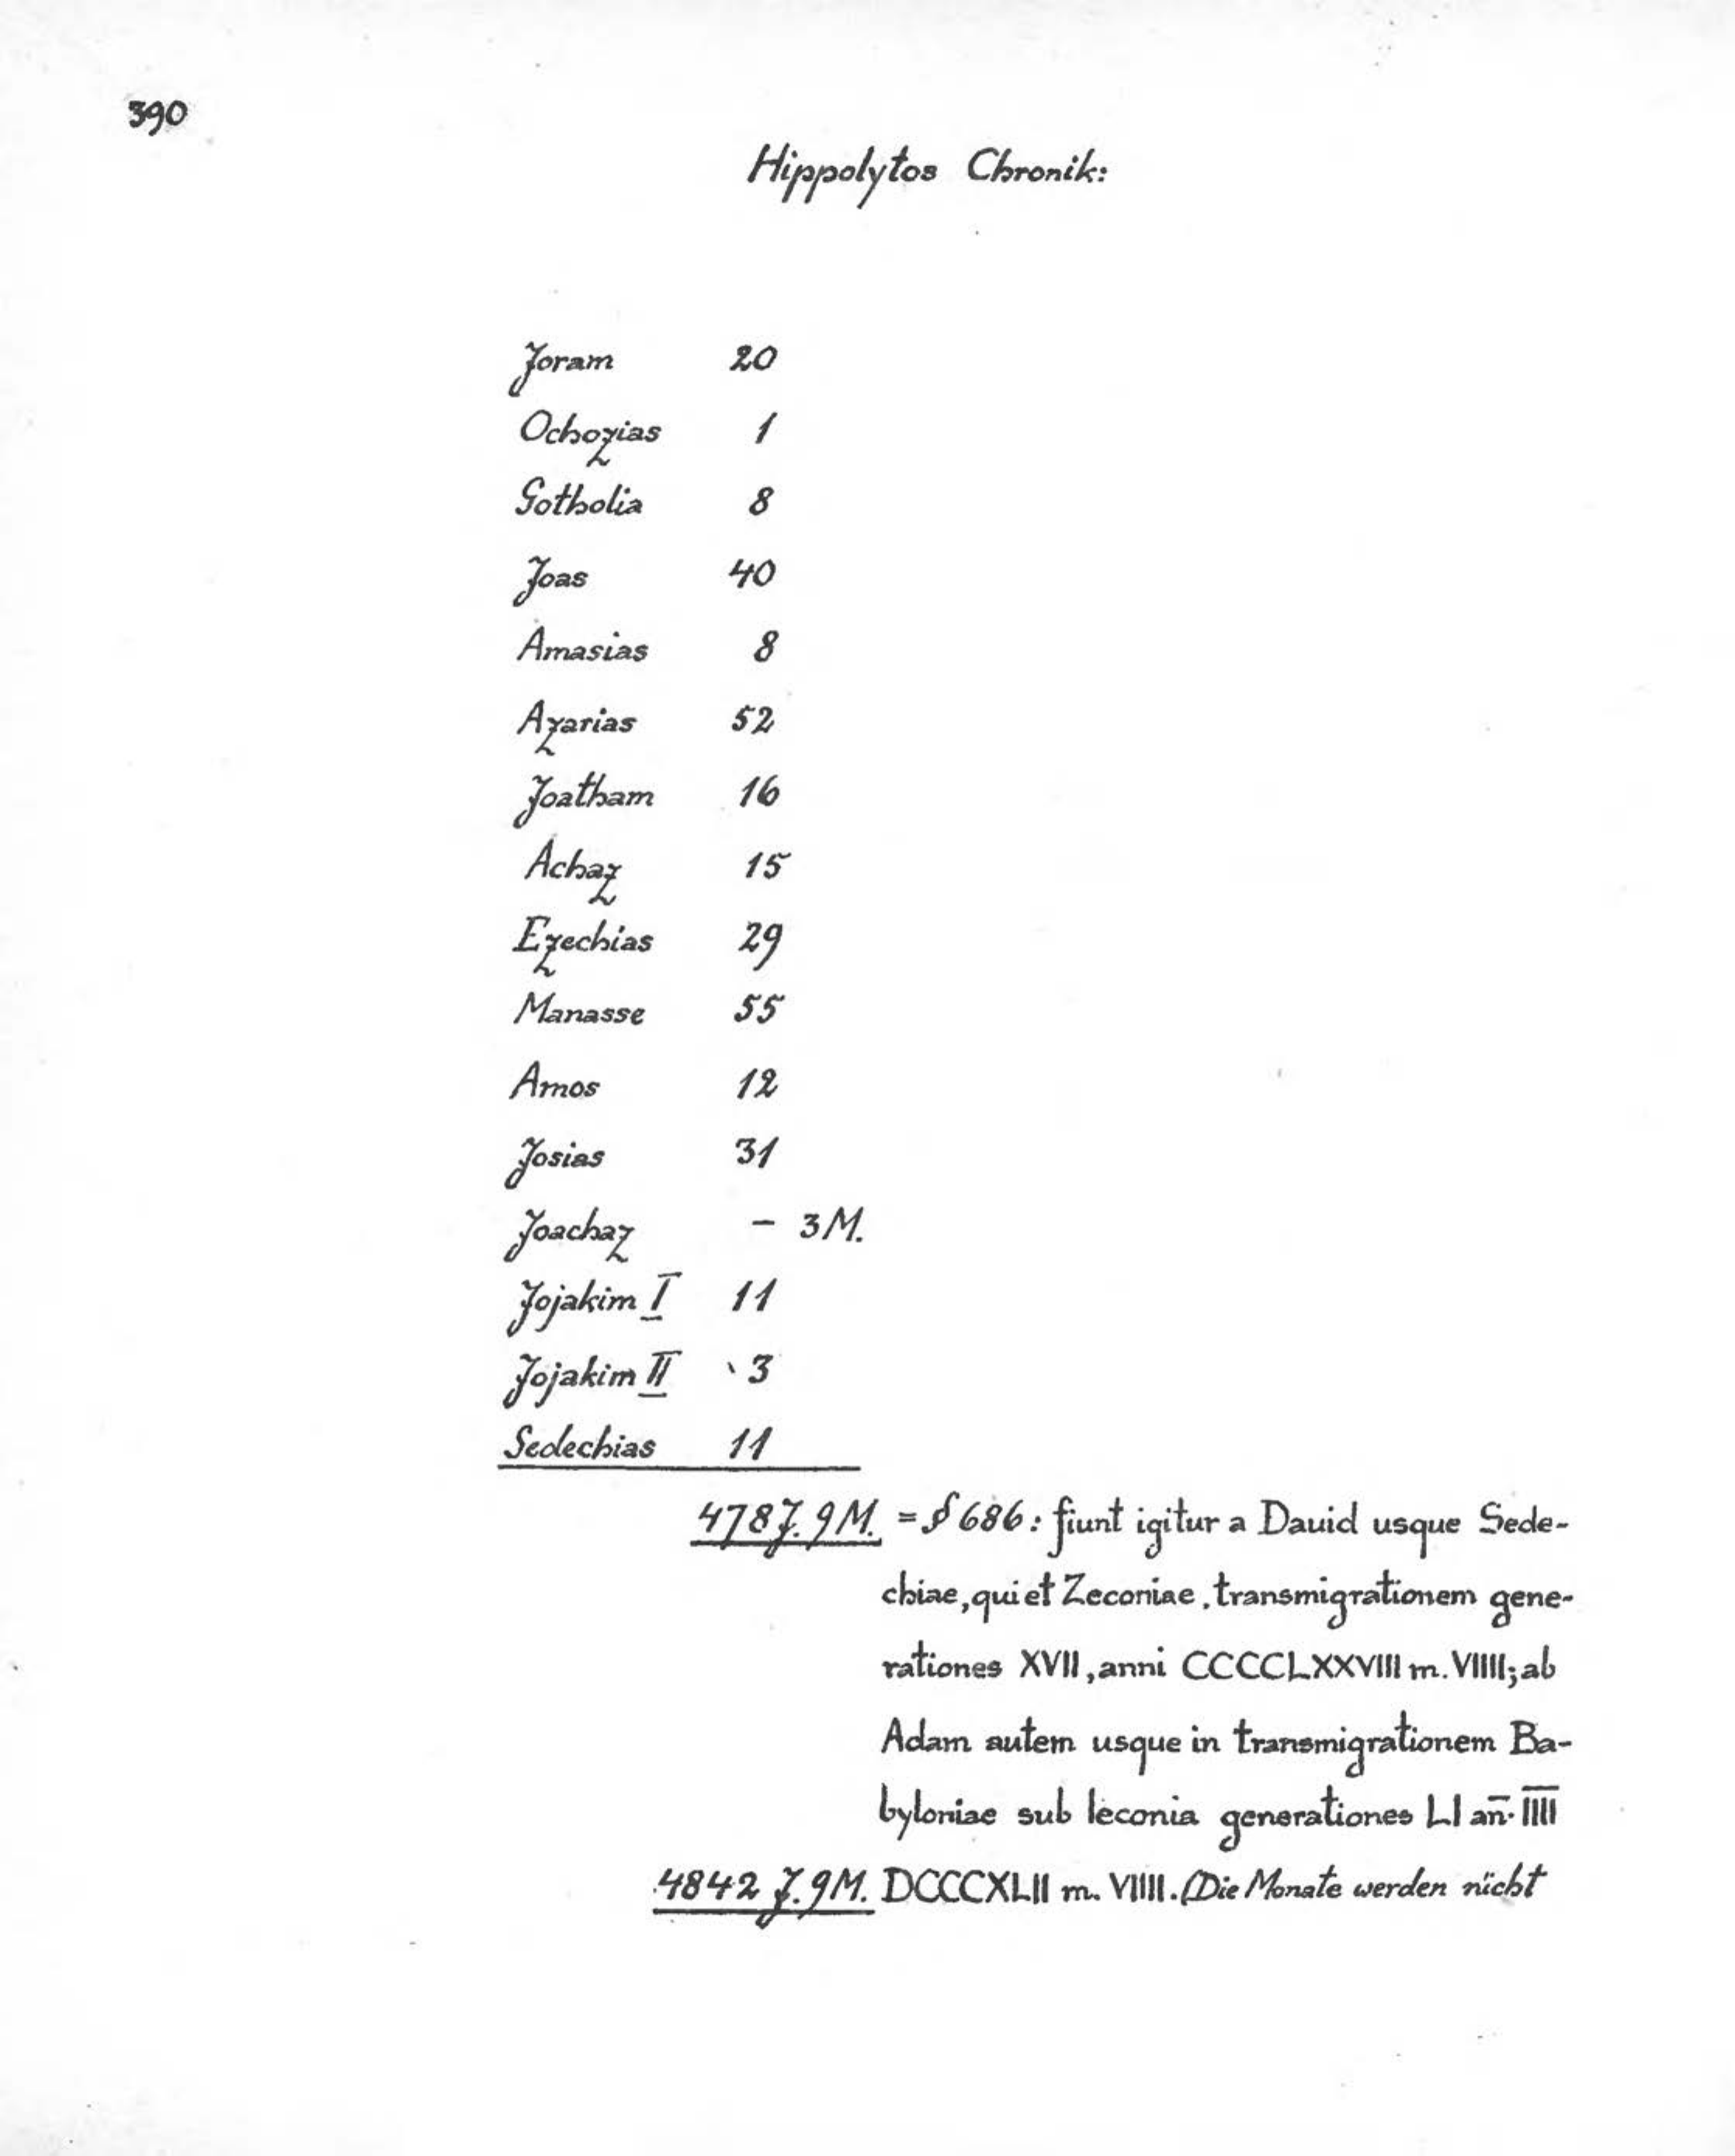 390
Hippolytos Chronik:
Joram 20
Ochozias 1
Gotholia 8
Joas 40
Amasias 8
Azarias 52
Joatham 16
Achaz 15
Ezechias 29
Manasse 55
Amos 12
Josias 31
Joachaz – 3 M.
Jojakim I 11
Jojakim II 3
Sedechias 11
478 J. 9 M. = § 686: fiunt igitur a Dauid usque Sede-
chiae, qui et Zeconiae, transmigrationem gene-
rationes XVII, anni CCCCLXXVIII m. VIIII; ab
Adam autem usque in transmigrationem Ba-
byloniae sub Ieconia generationes LI an̄. I̅I̅I̅I̅
4842 J. 9 M. DCCCXLII m. VIIII. (Die Monate werden nicht